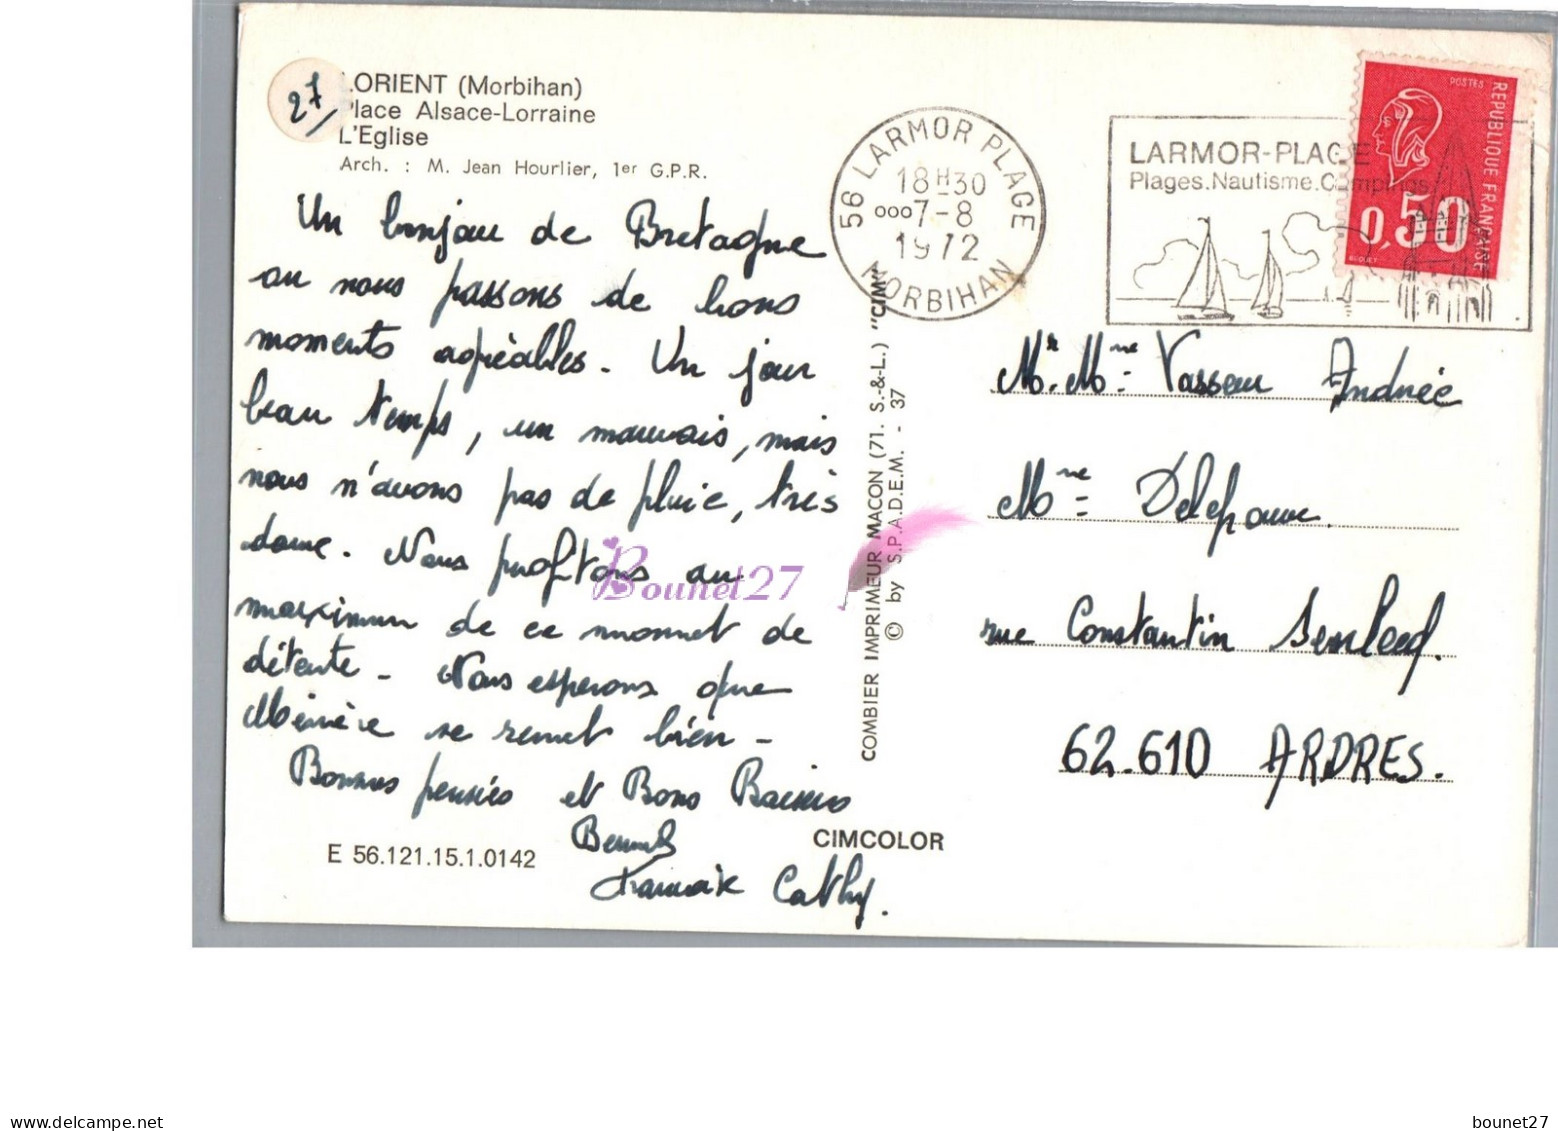 27
LORIENT (Morbihan)
Place Alsace-Lorraine
L'Eglise
Arch. : M. Jean Hourlier, 1er G.P.R.
Un bonjour de Bretagne
ou nous passons de bons
moments agréables. Un jour
beau temps, un mauvais, mais
nous n'avons pas de pluie, très
doux. Nous profitons au
maximum de ce moment de
détente - Nous espérons que
Mémère se remet bien -
Bonnes pensées et Bons Baisers
Cathy.
E 56.121.15.1.0142
CIMCOLOR
COMBIER IMPRIMEUR MACON (71. S.-&-L.) "CIM"
© by S.P.A.D.E.M. - 37
56 LARMOR PLAGE
18H30
0007-8
1972
MORBIHAN
LARMOR-PLAGE
Plages.Nautisme.Campings
POSTES
REPUBLIQUE FRANCAISE
0,50
BEQUET
Mr. Mme Vasseur Andrée
Mme
rue Constantin
62.610 ARDRES.
Bounet27
delcampe.net
bounet27